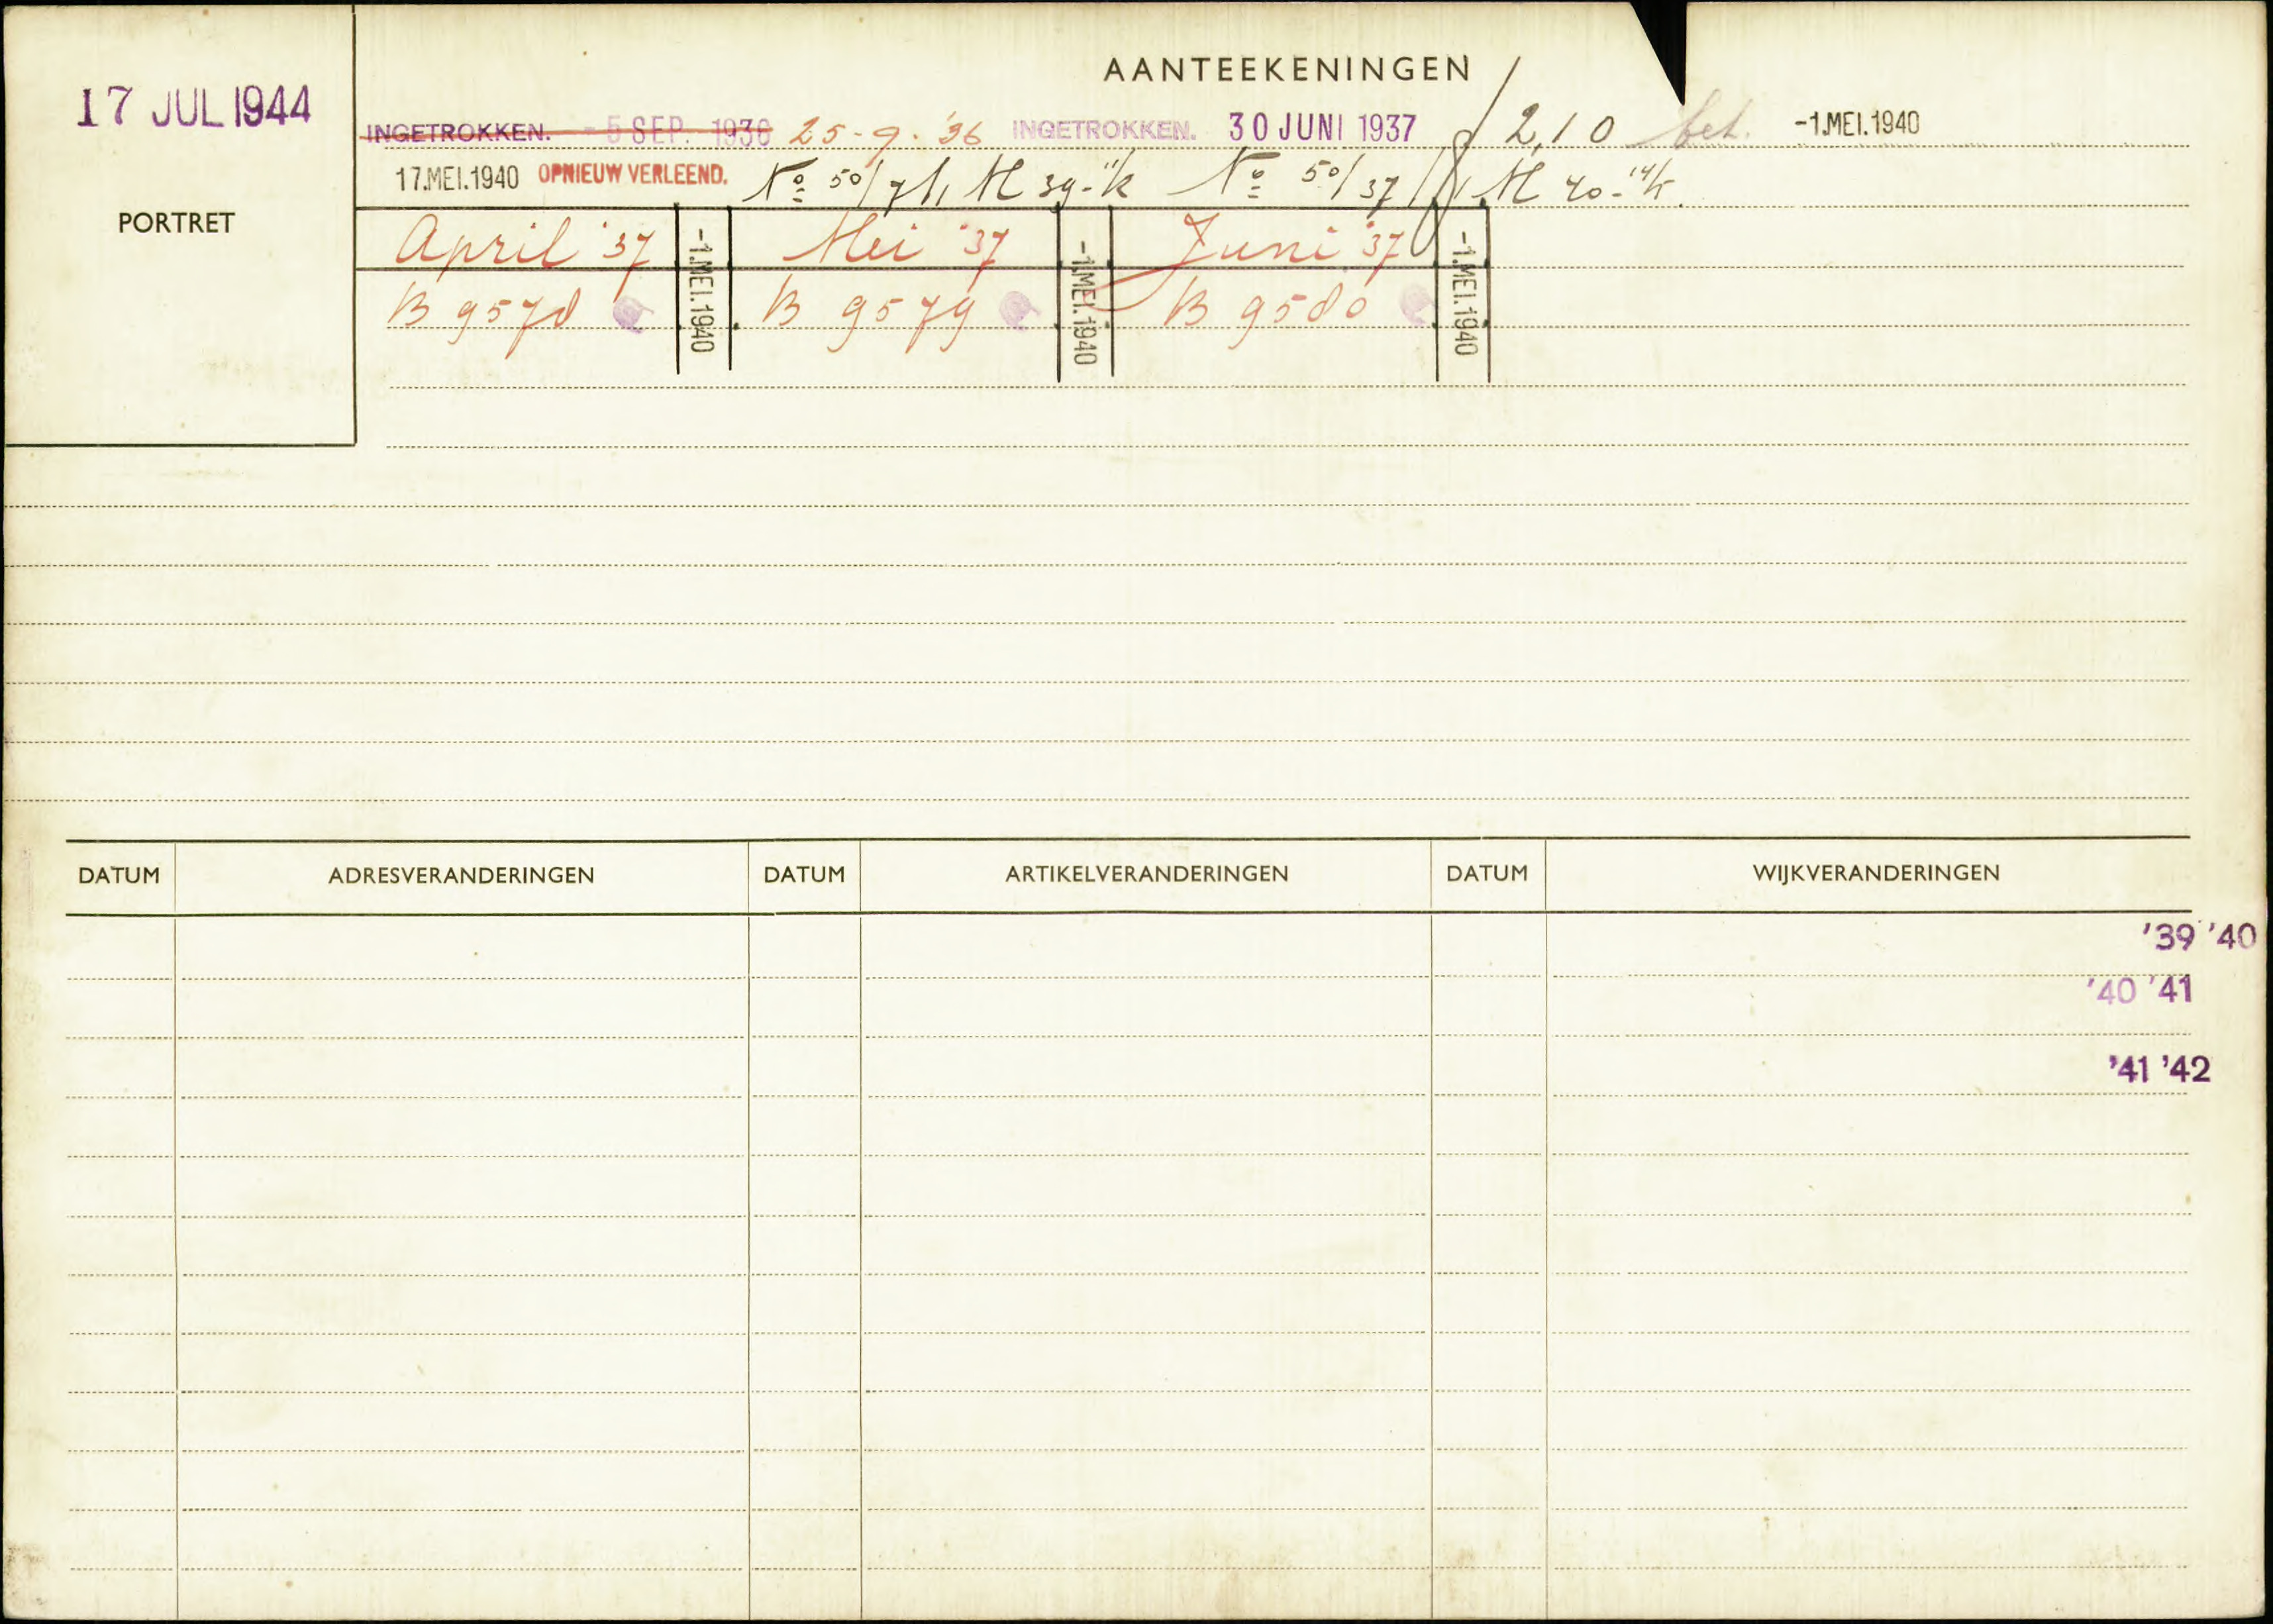 17 JUL 1944
PORTRET
AANTEEKENINGEN
INGETROKKEN. - 5 SEP. 1936 25-9-'36 INGETROKKEN. 30 JUNI 1937 / 2,10 bet. -1.MEI.1940
17.MEI.1940 OPNIEUW VERLEEND. No 50/7/1 M 39- No 50/37/1 M 40-
April '37 -1.MEI.1940 Mei '37 -1.MEI.1940 Juni '37 -1.MEI.1940
B 9578 B 9579 B 9580
DATUM ADRESVERANDERINGEN DATUM ARTIKELVERANDERINGEN DATUM WIJKVERANDERINGEN
'39 '40
'40 '41
'41 '42